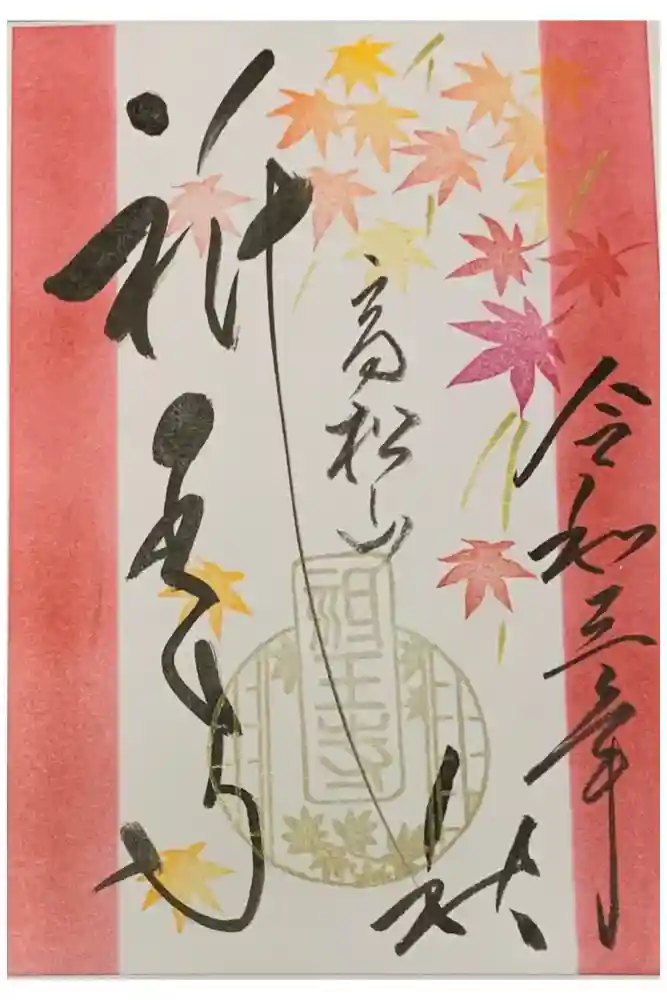 令和三年
秋
高松山
祇王寺